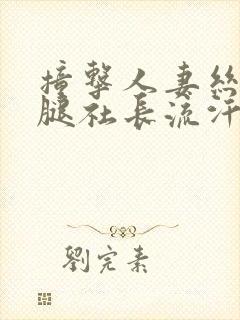 撞擊人妻絲
腿社長流汗
劉完素